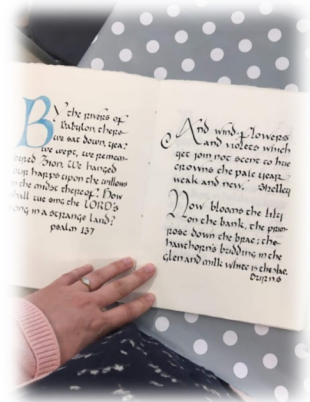 By the rivers of
Babylon there
we sat down, yea,
we wept, we remem-
bered Zion. We hanged
our harps upon the willows
in the midst thereof. How
shall we sing the LORD's
song in a strange land?
psalm 137
And wind flowers
and violets which
yet join not scent to hue
crowns the pale year
weak and new. Shelley
Now blooms the lily
on the bank, the prim-
rose down the brae; the
hawthorn's budding in the
glen and milk white is the slae.
Burns